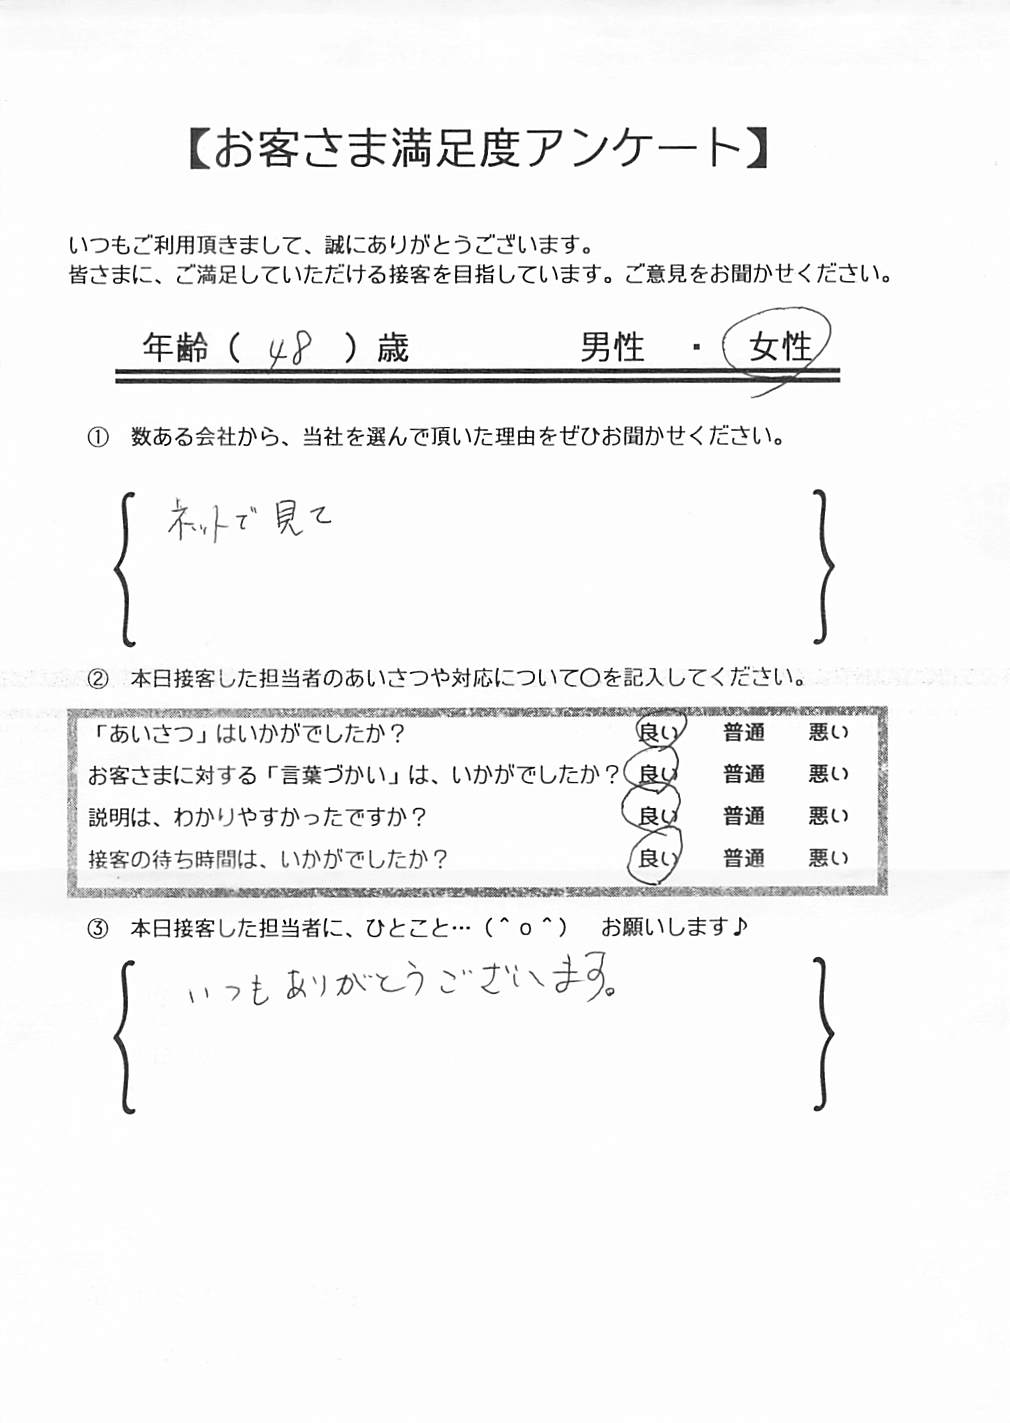 【お客さま満足度アンケート】
いつもご利用頂きまして、誠にありがとうございます。
皆さまに、ご満足していただける接客を目指しています。ご意見をお聞かせください。
年齢（ 48 ）歳 男性 ・ 女性
① 数ある会社から、当社を選んで頂いた理由をぜひお聞かせください。
ネットで見て
② 本日接客した担当者のあいさつや対応について〇を記入してください。
「あいさつ」はいかがでしたか？ 良い 普通 悪い
お客さまに対する「言葉づかい」は、いかがでしたか？ 良い 普通 悪い
説明は、わかりやすかったですか？ 良い 普通 悪い
接客の待ち時間は、いかがでしたか？ 良い 普通 悪い
③ 本日接客した担当者に、ひとこと…（＾ｏ＾） お願いします♪
いつもありがとうございます。